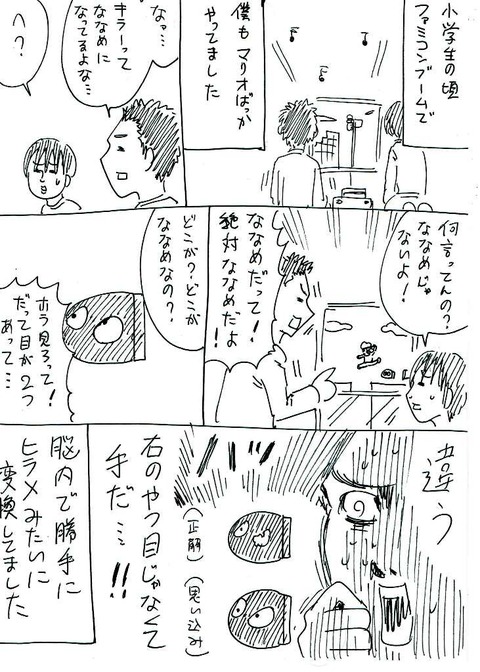 小学生の頃
ファミコンブームで
僕も マリオばっか
やってました
なァ…
キラーって
ななめに
なってるよな…
へ？
何言ってんの？
ななめじゃ
ないよ！
ななめだって！
絶対ななめだよ！
どこが？どこが
ななめなの？
ホラ見ろって！
だって目が2つ
あって…
違う
(正解)
(思い込み)
右のやつ目じゃなくて
手だ…!!
脳内で勝手に
ヒラメみたいに
変換してました